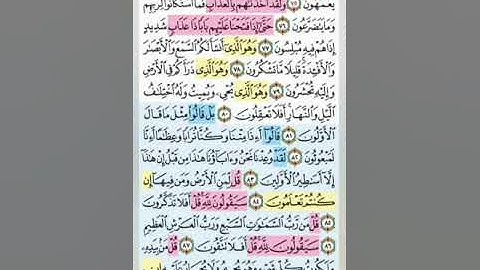 يَعْمَهُونَ ٧٥ وَلَقَدْ أَخَذْنَٰهُم بِالْعَذَابِ فَمَا اسْتَكَانُوا لِرَبِّهِمْ
وَمَا يَتَضَرَّعُونَ ٧٦ حَتَّىٰٓ إِذَا فَتَحْنَا عَلَيْهِم بَابًا ذَا عَذَابٍ شَدِيدٍ
إِذَا هُمْ فِيهِ مُبْلِسُونَ ٧٧ وَهُوَ الَّذِىٓ أَنشَأَ لَكُمُ السَّمْعَ وَالْأَبْصَٰرَ
وَالْأَفْـِٔدَةَ ۚ قَلِيلًا مَّا تَشْكُرُونَ ٧٨ وَهُوَ الَّذِى ذَرَأَكُمْ فِى الْأَرْضِ
وَإِلَيْهِ تُحْشَرُونَ ٧٩ وَهُوَ الَّذِى يُحْىِۦ وَيُمِيتُ وَلَهُ اخْتِلَٰفُ
الَّيْلِ وَالنَّهَارِ ۚ أَفَلَا تَعْقِلُونَ ٨٠ بَلْ قَالُوا مِثْلَ مَا قَالَ
الْأَوَّلُونَ ٨١ قَالُوٓا أَءِذَا مِتْنَا وَكُنَّا تُرَابًا وَعِظَٰمًا أَءِنَّا
لَمَبْعُوثُونَ ٨٢ لَقَدْ وُعِدْنَا نَحْنُ وَءَابَآؤُنَا هَٰذَا مِن قَبْلُ إِنْ هَٰذَآ
إِلَّآ أَسَٰطِيرُ الْأَوَّلِينَ ٨٣ قُل لِّمَنِ الْأَرْضُ وَمَن فِيهَآ إِن
كُنتُمْ تَعْلَمُونَ ٨٤ سَيَقُولُونَ لِلَّهِ ۚ قُلْ أَفَلَا تَذَكَّرُونَ
٨٥ قُلْ مَن رَّبُّ السَّمَٰوَٰتِ السَّبْعِ وَرَبُّ الْعَرْشِ الْعَظِيمِ
٨٦ سَيَقُولُونَ لِلَّهِ ۚ قُلْ أَفَلَا تَتَّقُونَ ٨٧ قُلْ مَنۢ بِيَدِهِۦ